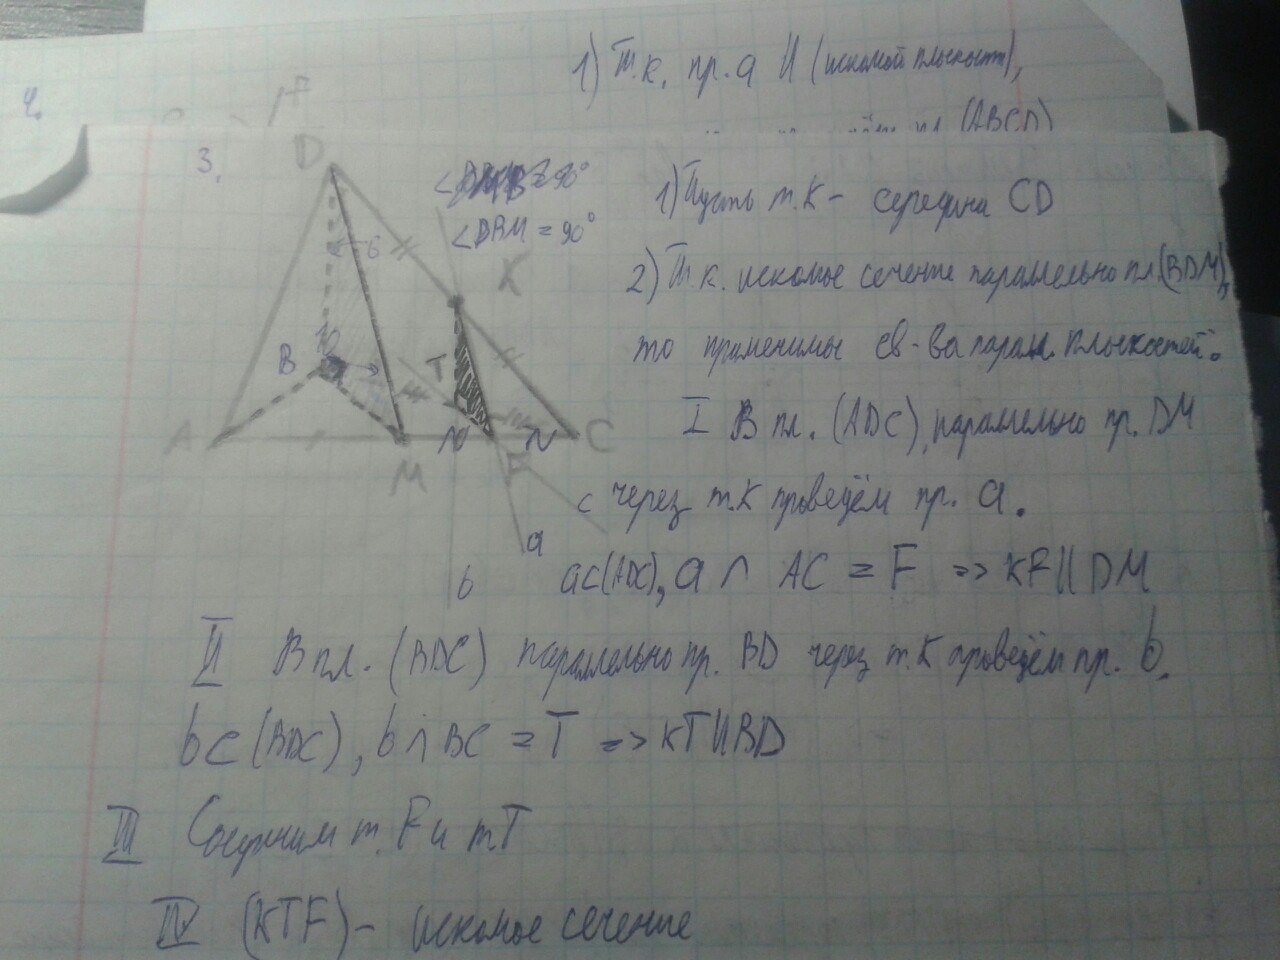 1) Т.к. пр. a || (искомой плоскости),
4.
пл (ABCD)
3.
D
∠DBM = 90°
1) Пусть т. K - середина CD
6
K
2) Т.к. искомое сечение параллельно пл (BDM),
10
B
T
то применимы св-ва парал. плоскостей:
A
M
F
C
I В пл. (ADC), параллельно пр. DM
c через т. K проведём пр. a.
a
b
a⊂(ADC), a ∩ AC = F => KF || DM
II В пл. (BDC) параллельно пр. BD через т. K проведём пр. b.
b⊂(BDC), b∩BC = T => KT||BD
III Соединим т. F и т T
IV (KTF) - искомое сечение